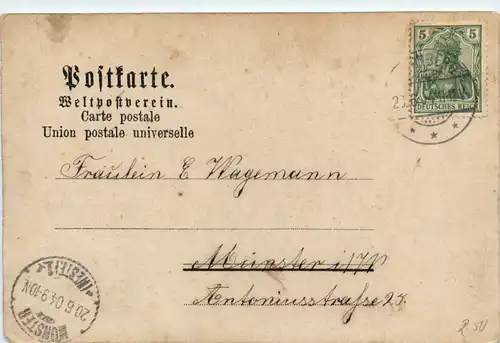 Postkarte.
Weltpostverein.
Carte postale
Union postale universelle
5 5
DEUTSCHES REICH
Fräulein E Wagemann
Münster i/W
Antoniusstrasse 25.
MÜNSTER
(WESTF.) 1
20.6.03.9-10N.